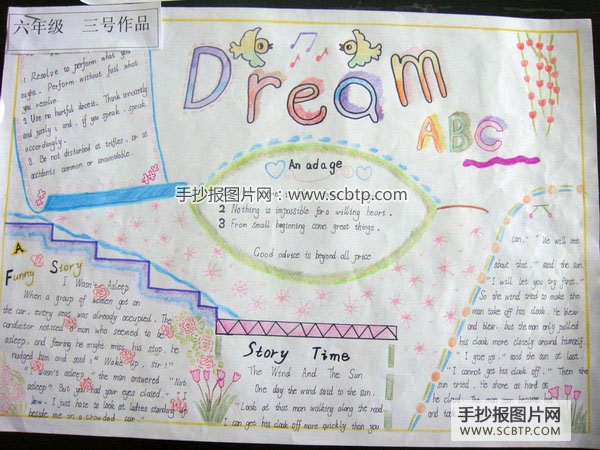 六年级 三号作品
Dream
ABC
1. Resolve to perform what you
ought. Perform without fail what
you resolve.
2. Use no hurtful deceit. Think innocently
and justly, and, if you speak, speak
accordingly.
3. Be not disturbed at trifles, or at
accidents common or unavoidable.
An adage
手抄报图片网:www.scbtp.com
2 Nothing is impossible for a willing heart.
3 From small beginning come great things.
Good advice is beyond all price
A
Funny Story
I Wasn't Asleep
When a group of women got on
the car, every seat was already occupied. The
conductor noticed a man who seemed to be
asleep, and fearing he might miss his stop, he
nudged him and said: "Wake up, sir!"
"I wasn't asleep," the man answered. "Not
asleep? But you had your eyes closed." "I
know. I just hate to look at ladies standing up
beside me in a crowded car."
Story Time
The Wind And The Sun
One day the wind said to the sun.
"Look at that man walking along the road
I can get his cloak off more quickly than you
can." "We will see
about that," said the sun.
"I will let you try first."
So the wind tried to make the
man take off his cloak. He blew
and blew, but the man only pulled
his cloak more closely around himself.
"I give up," said the sun at last
"I cannot get his cloak off." Then the
sun tried. He shone as hard as
he could. The man soon became hot
and took
手抄报图片网
WWW.SCBTP.COM